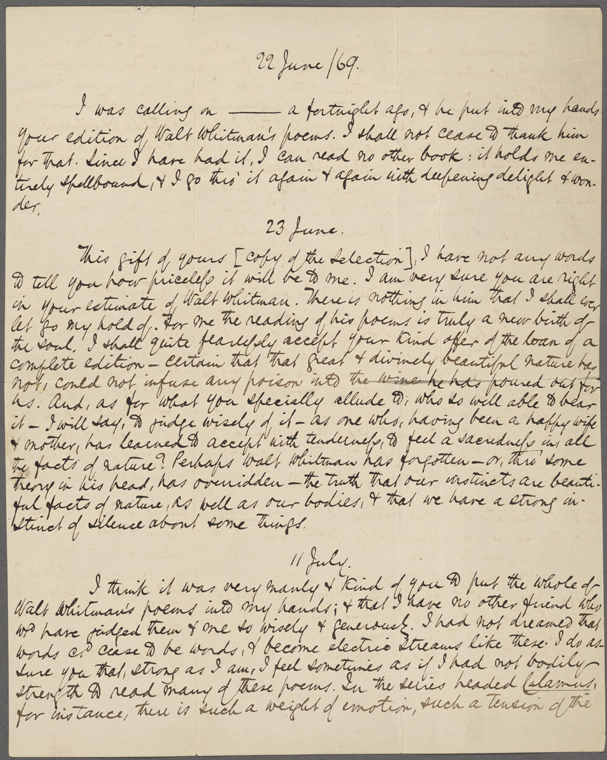 22 June /69.
I was calling on —— a fortnight ago, & he put into my hands
your edition of Walt Whitman's poems. I shall not cease to thank him
for that. Since I have had it, I can read no other book: it holds me en-
tirely spellbound, & I go thro' it again & again with deepening delight & won-
der.
23 June.
This gift of yours [copy of the Selection], I have not any words
to tell you how priceless it will be to me. I am very sure you are right
in your estimate of Walt Whitman. There is nothing in him that I shall ever
let go my hold of. For me the reading of his poems is truly a new birth of
the soul. I shall quite fearlessly accept your kind offer of the loan of a
complete edition – certain that that great & divinely beautiful nature has
not, could not infuse any poison into the wine he has poured out for
us. And, as for what you specially allude to, who so well able to bear
it – I will say, to judge wisely of it – as one who, having been a happy wife
& mother, has learned to accept with tenderness, to feel a sacredness in, all
the facts of nature? Perhaps Walt Whitman has forgotten – or, thro' some
theory in his head, has overridden – the truth that our instincts are beauti-
ful facts of nature, as well as our bodies, & that we have a strong in-
stinct of silence about some things.
11 July.
I think it was very manly & kind of you to put the whole of
Walt Whitman's poems into my hands; & that I have no other friend who
wd have judged them & me so wisely & generously. I had not dreamed that
words cd cease to be words, & become electric streams like these. I do as-
sure you that, strong as I am, I feel sometimes as if I had not bodily
strength to read many of these poems. In the series headed Calamus,
for instance, there is such a weight of emotion, such a tension of the